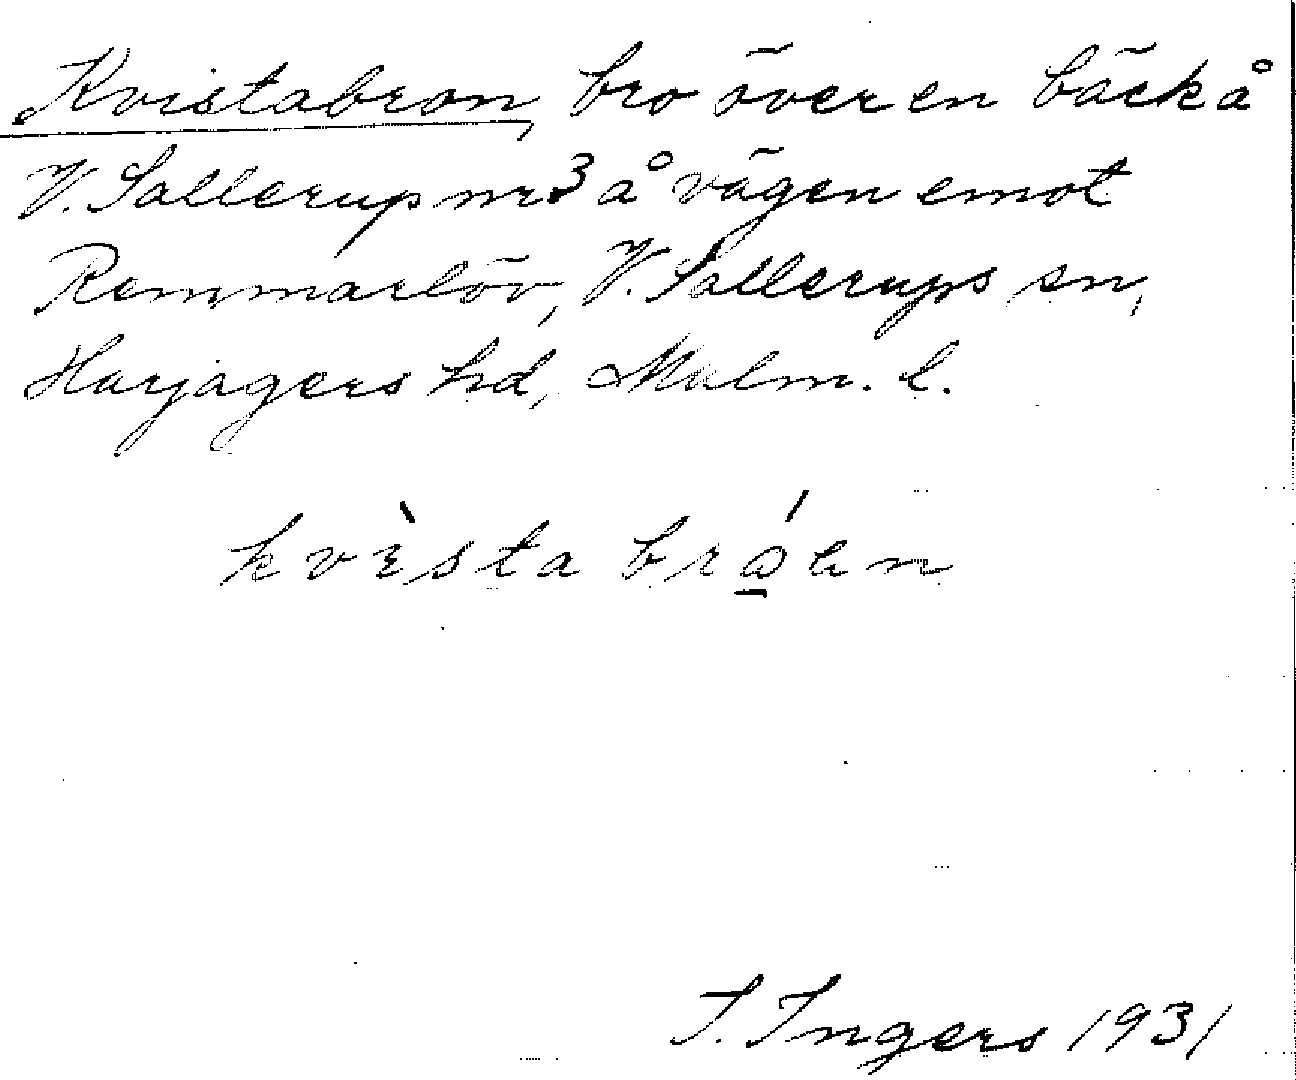 Kvistabron, bro över en bäck å
V. Sallerup nr 3 å vägen emot
Remmarlöv, V. Sallerups sn,
Harjagers hd, Malm. l.
kvìsta brǫ́en
I. Ingers 1931